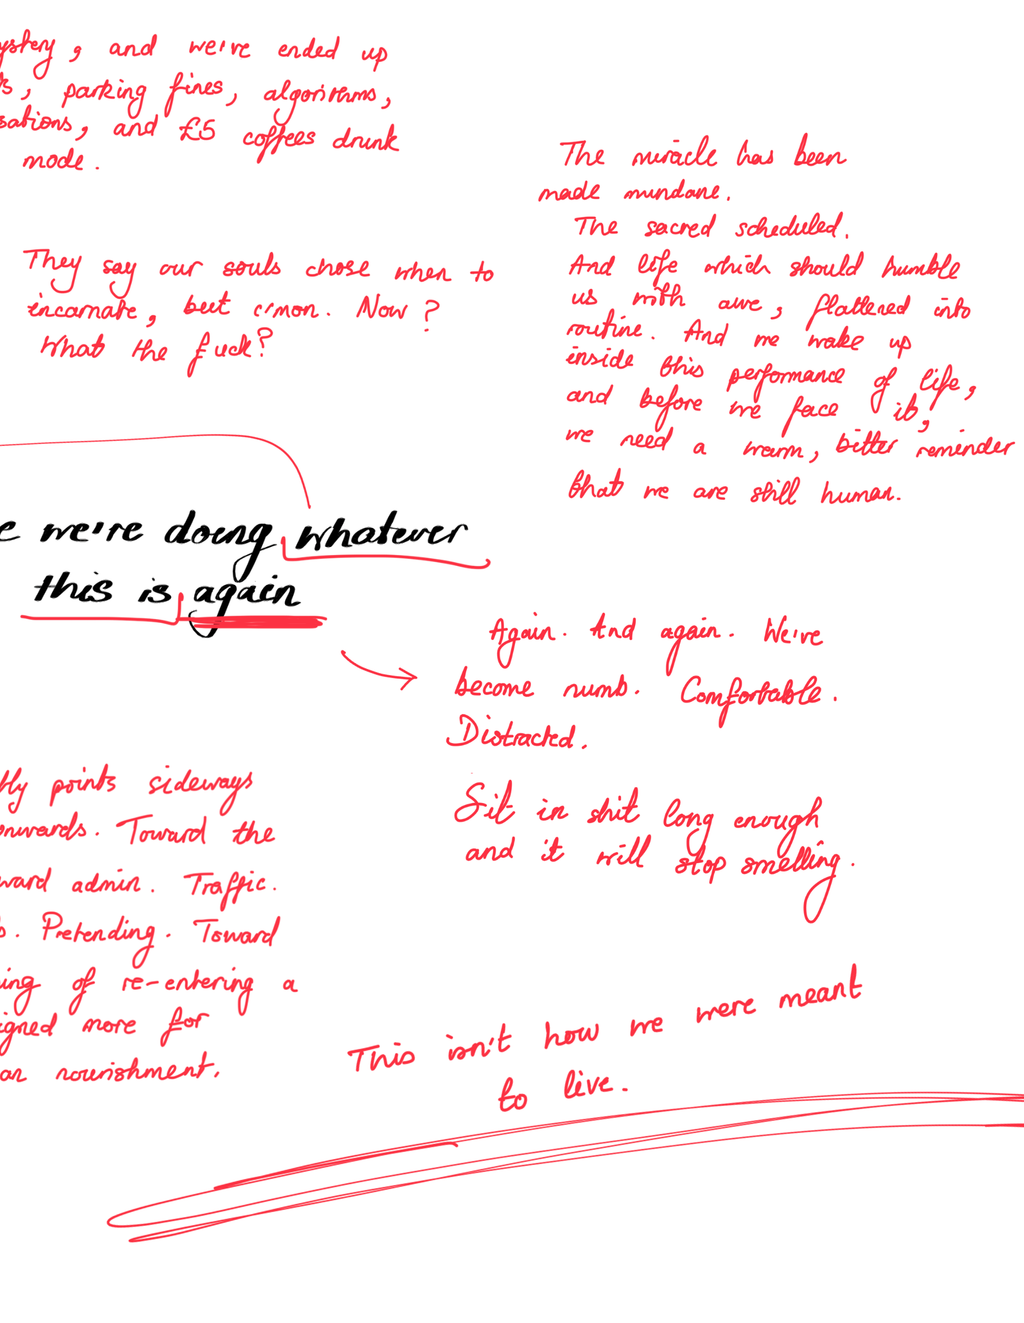 ystery, and we've ended up
s, parking fines, algorithms,
sations, and £5 coffees drunk
mode.
The miracle has been
made mundane.
The sacred scheduled.
And life which should humble
us with awe, flattened into
routine. And we wake up
inside this performance of life,
and before we face it,
we need a warm, bitter reminder
that we are still human.
They say our souls chose when to
incarnate, but c'mon. Now?
What the fuck?
e we're doing whatever
this is again
Again. And again. We've
become numb. Comfortable.
Distracted.
Sit in shit long enough
and it will stop smelling.
tly points sideways
onwards. Toward the
ward admin. Traffic.
s. Pretending. Toward
ing of re-entering a
igned more for
an nourishment.
This isn't how we were meant
to live.